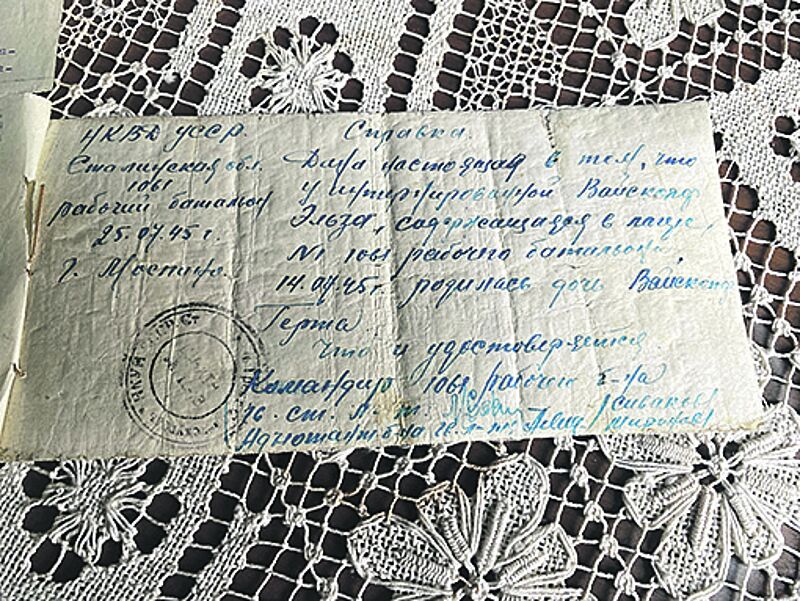 НКВД УССР.
Сталинская обл.
1061
рабочий батальон
25.07.45 г.
г. Моспино.
Справка.
Дана настоящая в том, что
у интернированной Вайскопф
Эльза, содержащаяся в лагере,
N1 1061 рабочего батальона,
14.07.45г. родилась дочь Вайскопф
Герта.
Что и удостоверяется
Командир 1061 рабочего б-на
ст. л-т.
Адъютант б-на л-т /Сиваков/
/Миронов/